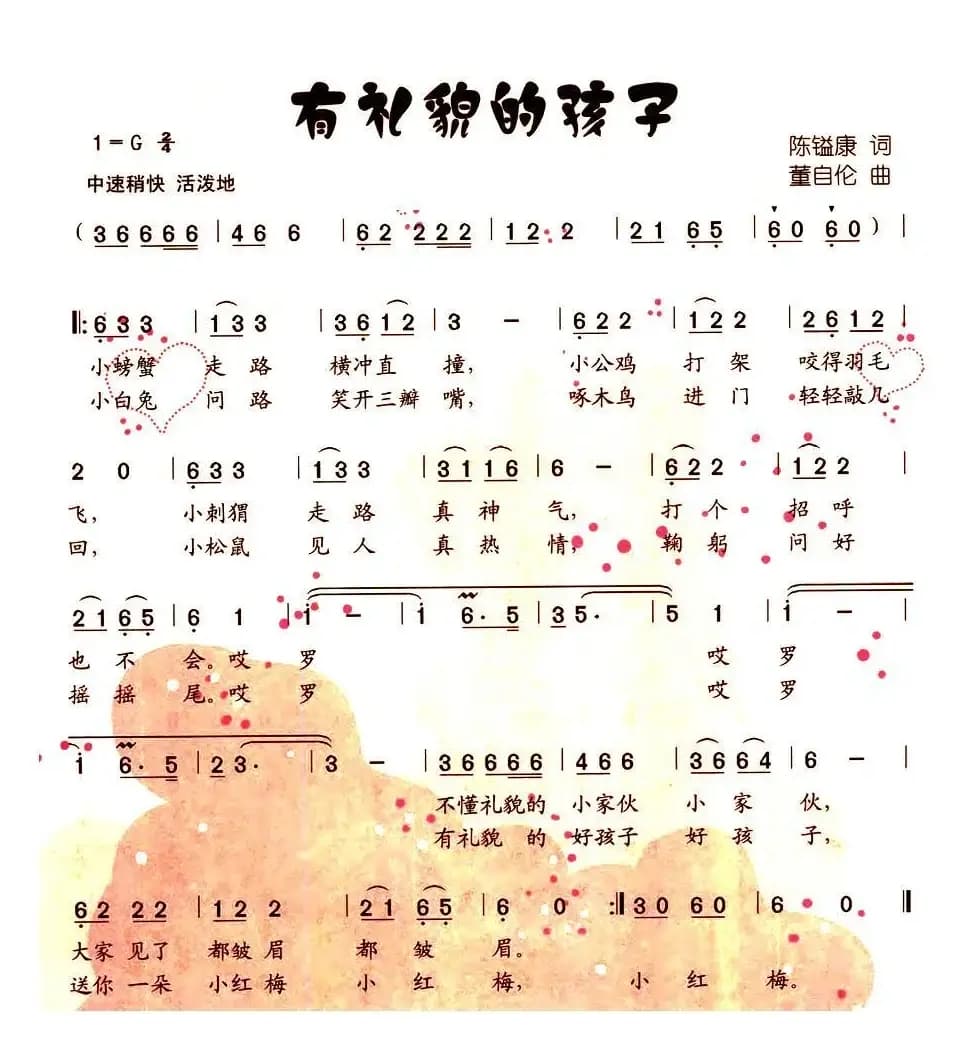 有礼貌的孩子
1=G 2/4
陈镒康 词
中速稍快 活泼地
董自伦 曲
(3 6 6 6 6 | 4 6 6 | 6 2 2 2 2 | 1 2 2 | 2 1 6 5 | 6 0 6 0) |
‖: 6 3 3 | 1 3 3 | 3 6 1 2 | 3 − | 6 2 2 | 1 2 2 | 2 6 1 2 |
小螃蟹 走 路 横冲直 撞, 小公鸡 打 架 咬得羽毛
小白兔 问 路 笑开三瓣 嘴, 啄木鸟 进 门 轻轻敲几
2 0 | 6 3 3 | 1 3 3 | 3 1 1 6 | 6 − | 6 2 2 | 1 2 2 |
飞, 小刺猬 走 路 真 神 气, 打 个 招 呼
回, 小松鼠 见 人 真 热 情, 鞠 躬 问 好
2 1 6 5 | 6 1 | i − | i 6· 5 | 3 5· | 5 1 | i − |
也 不 会。哎 罗 哎 罗
摇 摇 尾。哎 罗 哎 罗
i 6· 5 | 2 3· | 3 − | 3 6 6 6 6 | 4 6 6 | 3 6 6 4 | 6 − |
不懂礼貌的 小家伙 小 家 伙,
有礼貌 的 好孩子 好 孩 子,
6 2 2 2 | 1 2 2 | 2 1 6 5 | 6 0 :‖ 3 0 6 0 | 6 0 ‖
大家 见了 都皱眉 都 皱 眉。
送你 一朵 小红梅 小 红 梅, 小 红 梅。